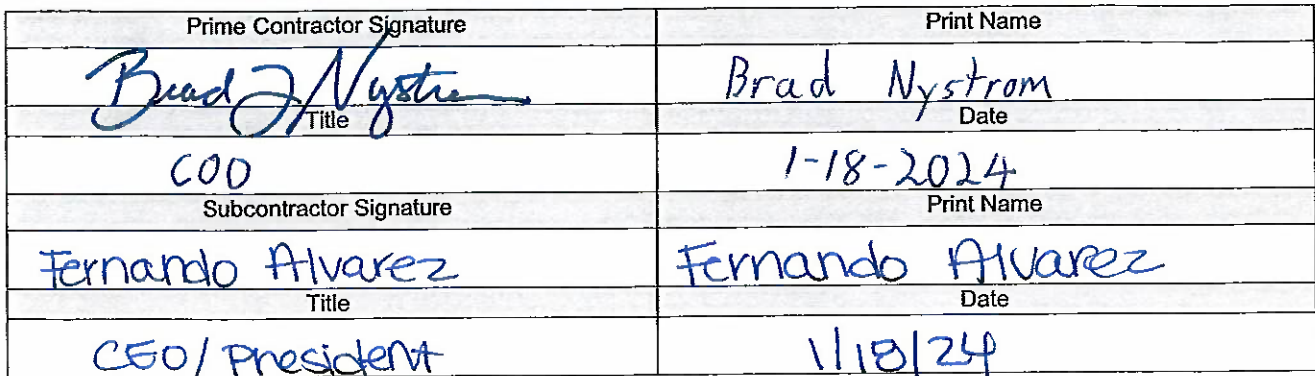 Prime Contractor Signature Print Name
Brad J Nystrom Brad Nystrom
Title Date
COO 1-18-2024
Subcontractor Signature Print Name
Fernando Alvarez Fernando Alvarez
Title Date
CEO/President 1/18/24